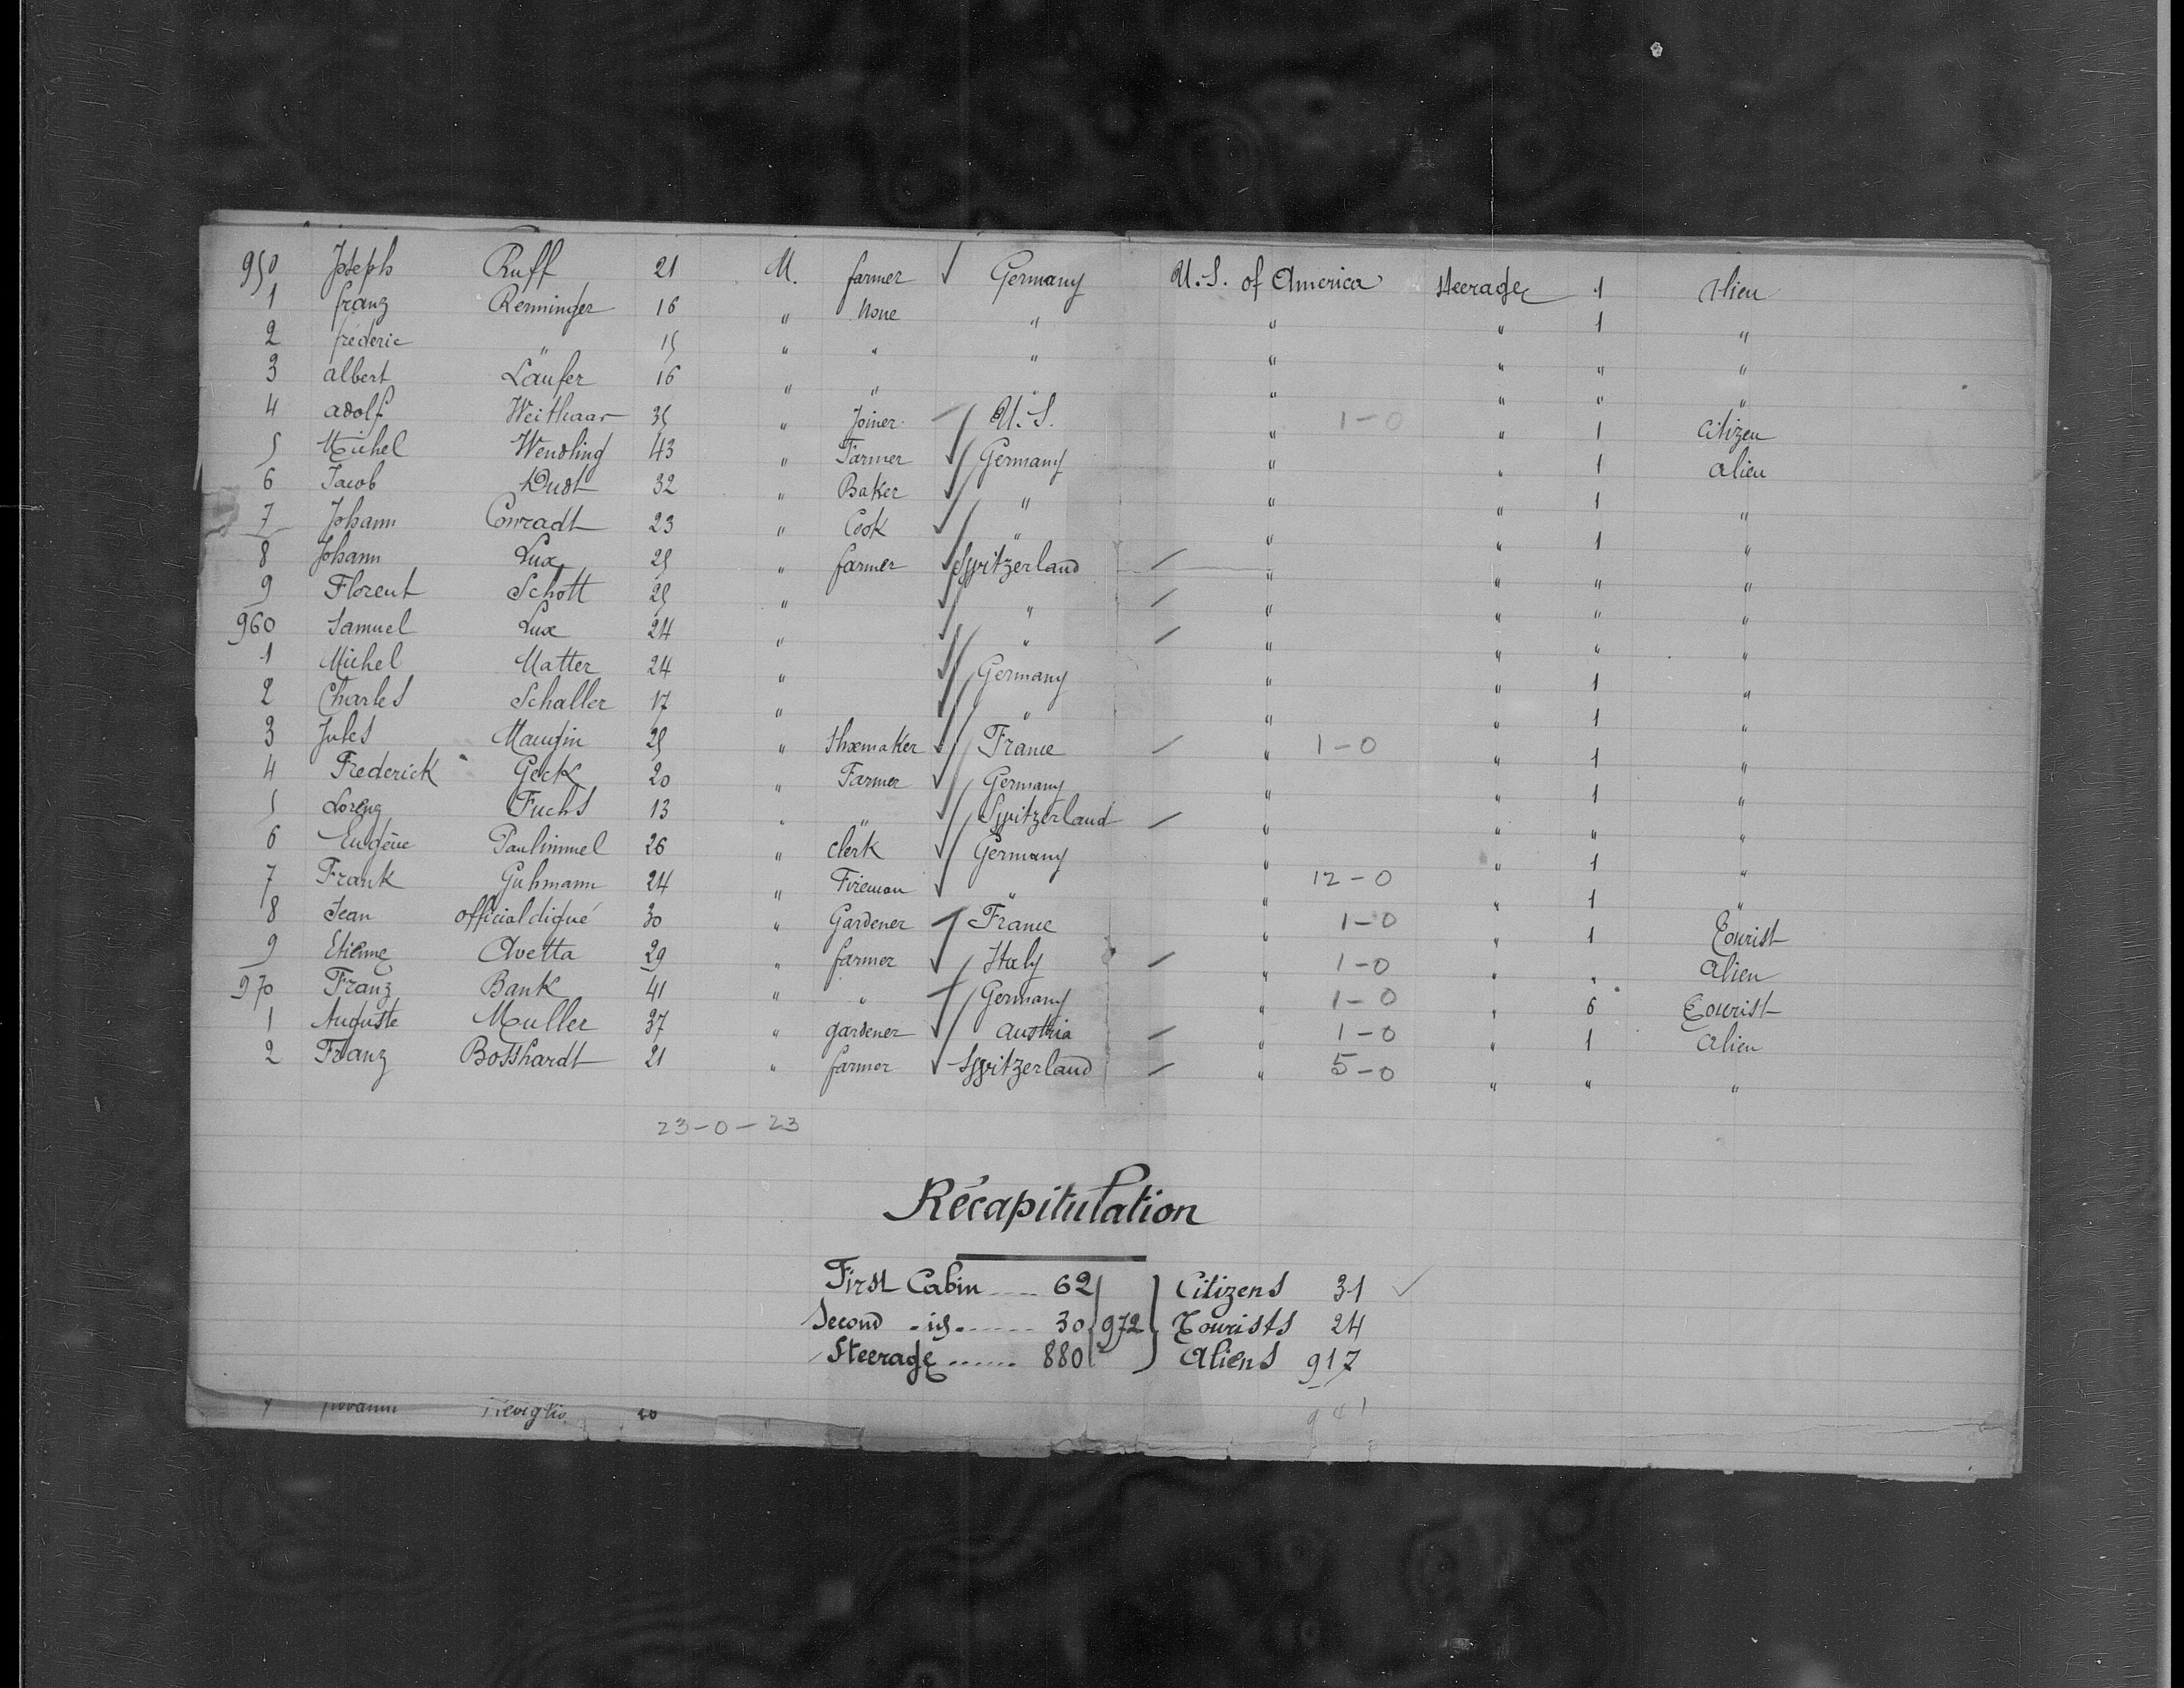 950 Joseph Ruff 21 M. farmer ✓ Germany U.S. of America Steerage 1 Alien
1 franz Renninger 16 " None " " " 1 "
2 fréderic " 15 " " " " " " "
3 albert Läufer 16 " " " " " "
4 adolf Weithaar 35 " Joiner U.S. " 1-0 " 1 Citizen
5 Michel Wendling 43 " Farmer ✓ Germany " " 1 alien
6 Jacob Dudt 32 " Baker ✓ " " " 1 "
7 Johann Conradt 23 " Cook ✓ " " " 1 "
8 Johann Lux 25 " farmer ✓ Switzerland " " " "
9 Florent Schott 25 " ✓ " " " " "
960 Samuel Lux 24 " ✓ " " " " "
1 Michel Matter 24 " ✓ Germany " " 1 "
2 Charles Schaller 17 " ✓ " " " 1 "
3 Jules 25 " Shoemaker ✓ France " 1-0 " 1 "
4 Frederick Geck 20 " Farmer ✓ Germany " " 1 "
5 Lorenz Fuchs 13 " " ✓ Switzerland " " " "
6 Eugène Paulimmel 26 " Clerk ✓ Germany " " 1 "
7 Frank Guhmann 24 " Fireman ✓ " " 12-0 " 1 "
8 Jean officialdiqué 30 " Gardener France " 1-0 " 1 Tourist
9 Etienne Avetta 29 " farmer ✓ Italy " 1-0 " " Alien
970 Franz Bank 41 " " Germany " 1-0 " 6 Tourist
1 Auguste Muller 37 " gardener ✓ Austria " 1-0 " 1 Alien
2 Franz Bosshardt 21 " farmer ✓ Switzerland " 5-0 " " "
23-0-23
Récapitulation
First Cabin 62 Citizens 31 ✓
Second id 30 972 Tourists 24
Steerage 880 Aliens 917
20